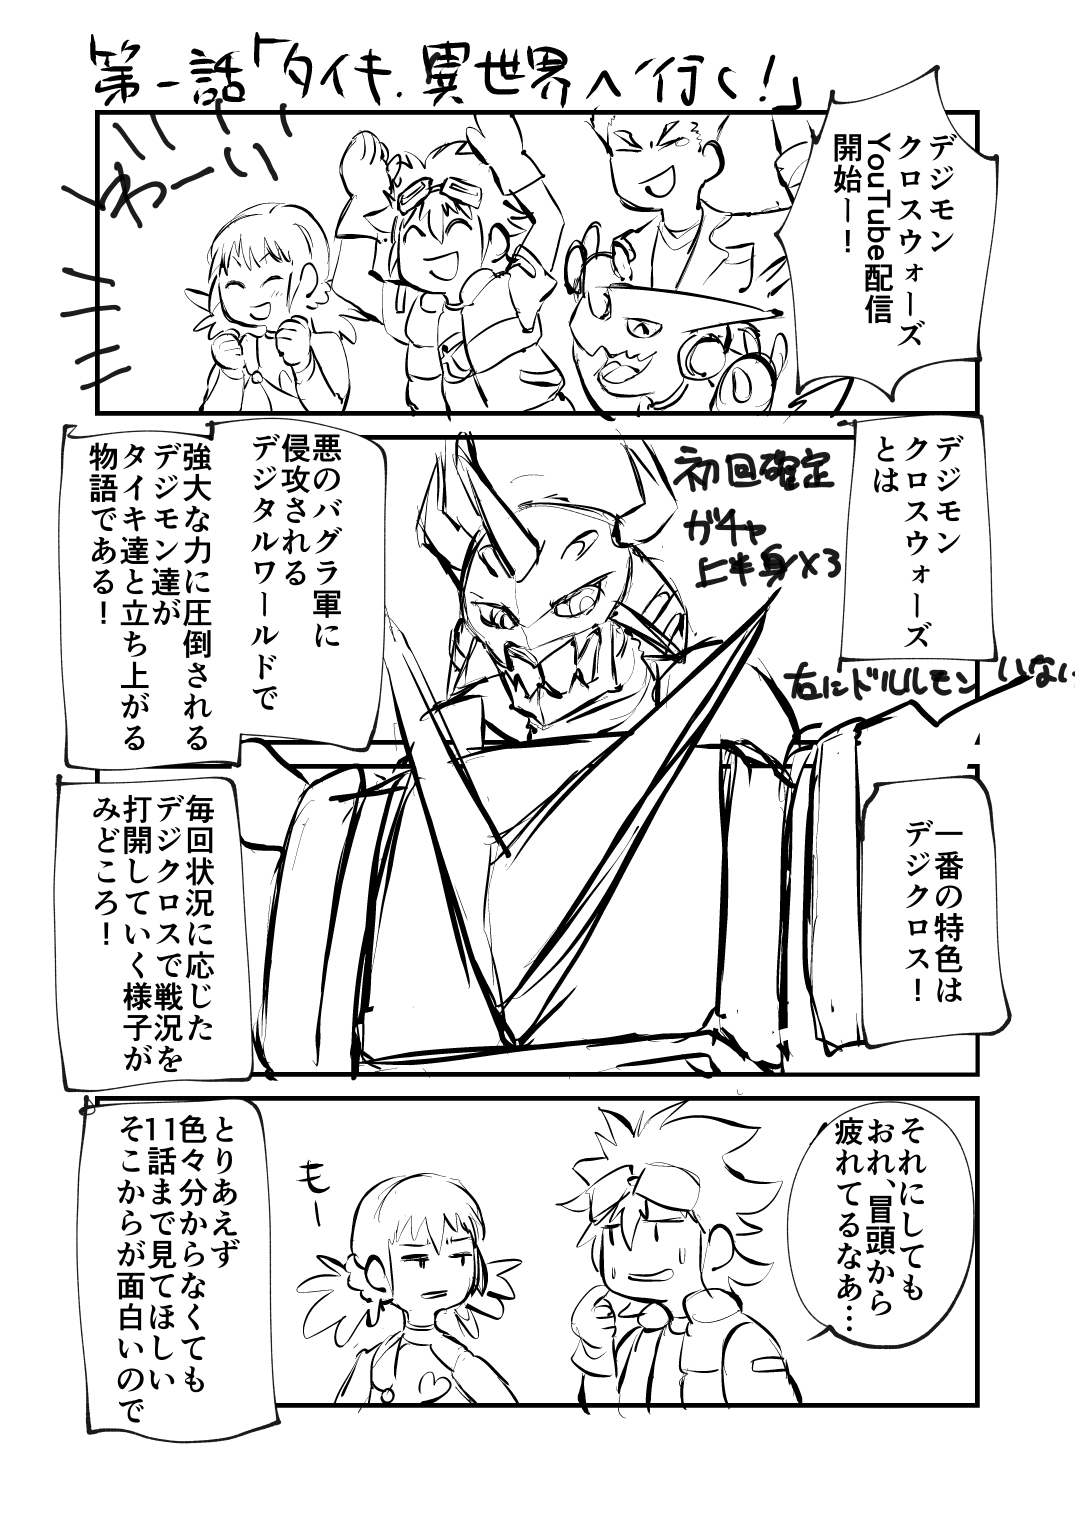 第一話「タイキ、異世界へ行く!」
デジモン
クロスウォーズ
YouTube配信
開始ー!
わーい
デジモン
クロスウォーズ
とは
初回確定
ガチャ
上半身×3
悪のバグラ軍に
侵攻される
デジタルワールドで
強大な力に圧倒される
デジモン達が
タイキ達と立ち上がる
物語である!
右にドルルモン いない
一番の特色は
デジクロス!
毎回状況に応じた
デジクロスで戦況を
打開していく様子が
みどころ!
それにしても
おれ、冒頭から
疲れてるなあ…
もー
とりあえず
色々分からなくても
11話まで見てほしい
そこからが面白いので